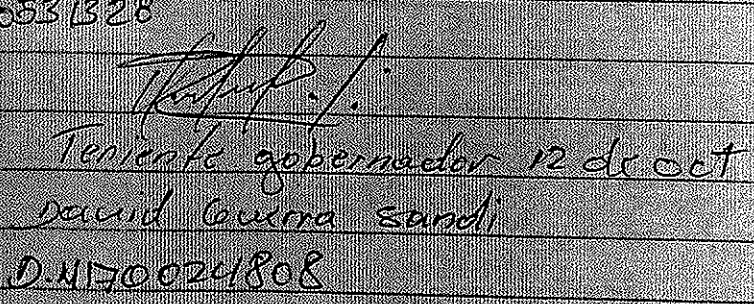 00531328
Teniente gobernador 12 de oct
David Guerra Sandi
D.N170024808